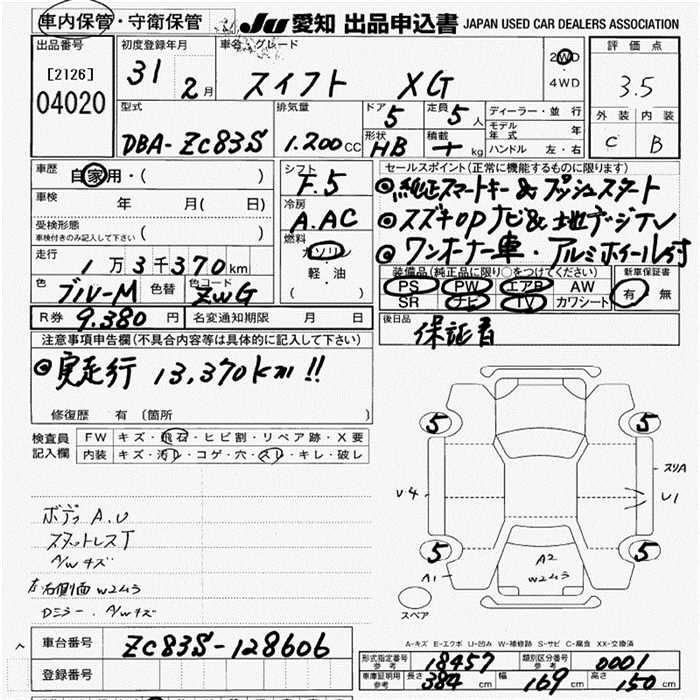 車内保管・守衛保管 JU 愛知 出品申込書 JAPAN USED CAR DEALERS ASSOCIATION
出品番号 初度登録年月 車名・グレード 2WD ・ 4WD 評価点
[2126] 31 2月 スイフト XG 3.5
04020
型式 排気量 ドア 5 定員 5人 ディーラー・並行 外装 内装
DBA-ZC83S 1.200cc 形状 HB 積載 kg モデル年式 年 C B
ハンドル 左・右
車歴 自家用・( ) シフト F.5 セールスポイント(正常に機能するものに限ります)
車検 年 月( 日) 冷房 A.AC ◎純正スマートキー&プッシュスタート
受検形態 ( ) ◎スズキOPナビ&地デジTV
車検付きのみ記入して下さい 燃料 ガソリン ◎ワンオーナー車・アルミホイール付
走行 1万3千370km 軽・油 装備品(純正品に限り○をつけてください) 新車保証書
色 ブルーM 色替 色コード ZWG ( ) PS PW エアB AW 有 無
SR ナビ TV カワシート
R券 9.380円 名変通知期限 月 日 後日品
保証書
注意事項申告欄(不具合内容等は具体的に記入して下さい)
◎実走行 13,370km!!
修復歴 有 〔箇所 〕
検査員 FW キズ・飛石・ヒビ割・リペア跡・X要
記入欄 内装 キズ・汚レ・コゲ・穴・スレ・キレ・破レ
5 5
スリA
U4 U1
ボディ A.U
スタットレスT
A/Wキズ
5 5
A2
W2ムラ
左右側面W2ムラ A1
Dミラー.A/Wキズ
スペア
A-キズ E-エクボ U-凹み W-補修跡 S-サビ C-腐食 XX-交換済
車台番号 ZC83S-128606
登録番号
形式指定番号 参考 18457 類別区分番号 参考 0001
車庫証明用 参考 長さ 384cm 幅 169cm 高さ 150cm